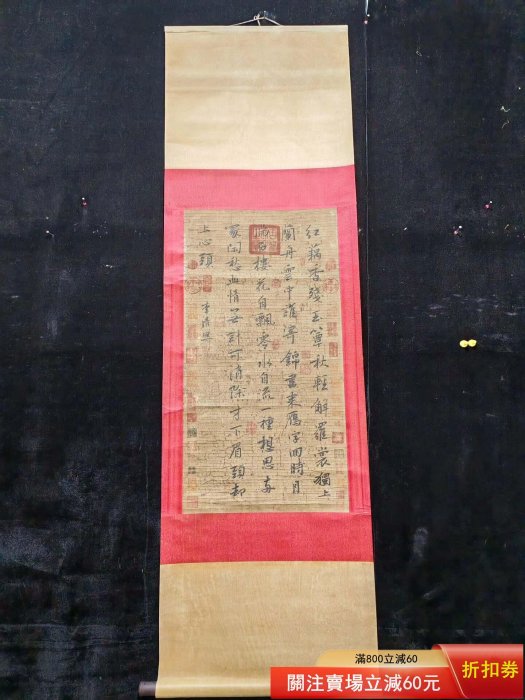 红藕香殘玉簟秋輕解羅裳獨上
蘭舟雲中誰寄錦書来雁字回時月
西樓花自飄零水自流一種相思兩
處闲愁此情無計可消除才下眉頭却
上心頭
李清照
滿800立減60
關注賣場立減60元
折扣券